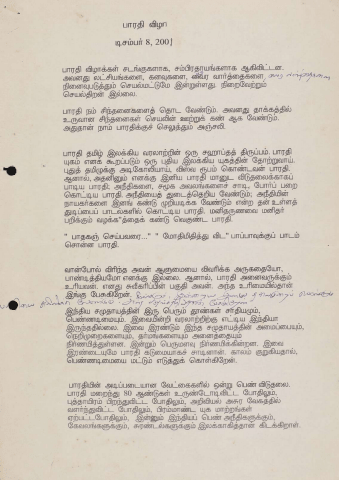 பாரதி விழா
டிசம்பர் 8, 2001
பாரதி விழாக்கள் சடங்குகளாக, சம்பிரதாயங்களாக ஆகிவிட்டன.
அவனது லட்சியங்களை, கனவுகளை, வீரிய வார்த்தைகளை,
நினைவுபடுத்தும் செயல்மட்டுமே இன்றுள்ளது. நிறைவேற்றும்
செயல்திறன் இல்லை.
பாரதி நம் சிந்தனைகளைத் தொட வேண்டும். அவனது தாக்கத்தில்
உருவான சிந்தனைகள் செயலின் ஊற்றுக் கண் ஆக வேண்டும்.
அதுதான் நாம் பாரதிக்குச் செலுத்தும் அஞ்சலி.
பாரதி தமிழ் இலக்கிய வரலாற்றின் ஒரு சகாப்தத் திருப்பம். பாரதி
யுகம் எனக் கூறப்படும் ஒரு புதிய இலக்கிய யுகத்தின் தோற்றுவாய்.
புதுத் தமிழுக்கு அடிகோலியாய், விஸ்வ ரூபம் கொண்டவன் பாரதி.
ஆனால், அதனினும் எனக்கு இனிய பாரதி மானுட விடுதலைக்காகப்
பாடிய பாரதி; அநீதிகளை, சமூக அவலங்களைச் சாடி, போர்ப் பறை
கொட்டிய பாரதி. அநீதியைத் துடைத்தெறிய வேண்டும்; அநீதியின்
நாயகர்களை இனங் கண்டு முறியடிக்க வேண்டும் என்ற தன் உள்ளத்
துடிப்பைப் பாடல்களில் கொட்டிய பாரதி. மனிதருணவை மனிதர்
பறிக்கும் வழக்கத்தைக் கண்டு வெகுண்ட பாரதி.
" பாதகஞ் செய்பவரை..." " மோதிமிதித்து விட" பாப்பாவுக்குப் பாடம்
சொன்ன பாரதி.
வான்போல் விரிந்த அவன் ஆளுமையை விவரிக்க அருகதையோ,
பாண்டித்தியமோ எனக்கு இல்லை. ஆனால், பாரதி அனைவருக்கும்
உரியவன். எனது சுவீகரிப்பின் பகுதி அவன். அந்த உரிமையில்தான்
இங்கு பேசுகிறேன்.
இந்திய சமுதாயத்தின் இரு பெரும் தூண்கள் சாதியமும்,
பெண்ணடிமையும். இவைமின்றி வரலாற்றிற்கு எட்டிய இந்தியா
இருந்ததில்லை. இவை இரண்டும் இந்த சமுதாயத்தின் அமைப்பையும்,
நெறிமுறைகளையும், தர்மங்களையும் அனைத்தையும்
நிர்ணயித்துள்ளன. இன்னும் பெருமளவு நிர்ணயிக்கின்றன. இவை
இரண்டையுமே பாரதி கடுமையாகச் சாடினான். காலம் குறுகியதால்,
பெண்ணடிமையை மட்டும் எடுத்துக் கொள்கிறேன்.
பாரதியின் அடிப்படையான வேட்கைகளில் ஒன்று பெண் விடுதலை.
பாரதி மறைந்து 80 ஆண்டுகள் உருண்டோடிவிட்ட போதிலும்,
புத்தாயிரம் பிறந்துவிட்ட போதிலும், அறிவியல் அசுர வேகத்தில்
வளர்ந்துவிட்ட போதிலும், பிரம்மாண்ட யுக மாற்றங்கள்
ஏற்பட்டபோதிலும், இன்னும் இந்தியப் பெண் அநீதிகளுக்கும்,
கேவலங்களுக்கும், சுரண்டல்களுக்கும் இலக்காகித்தான் கிடக்கிறாள்.